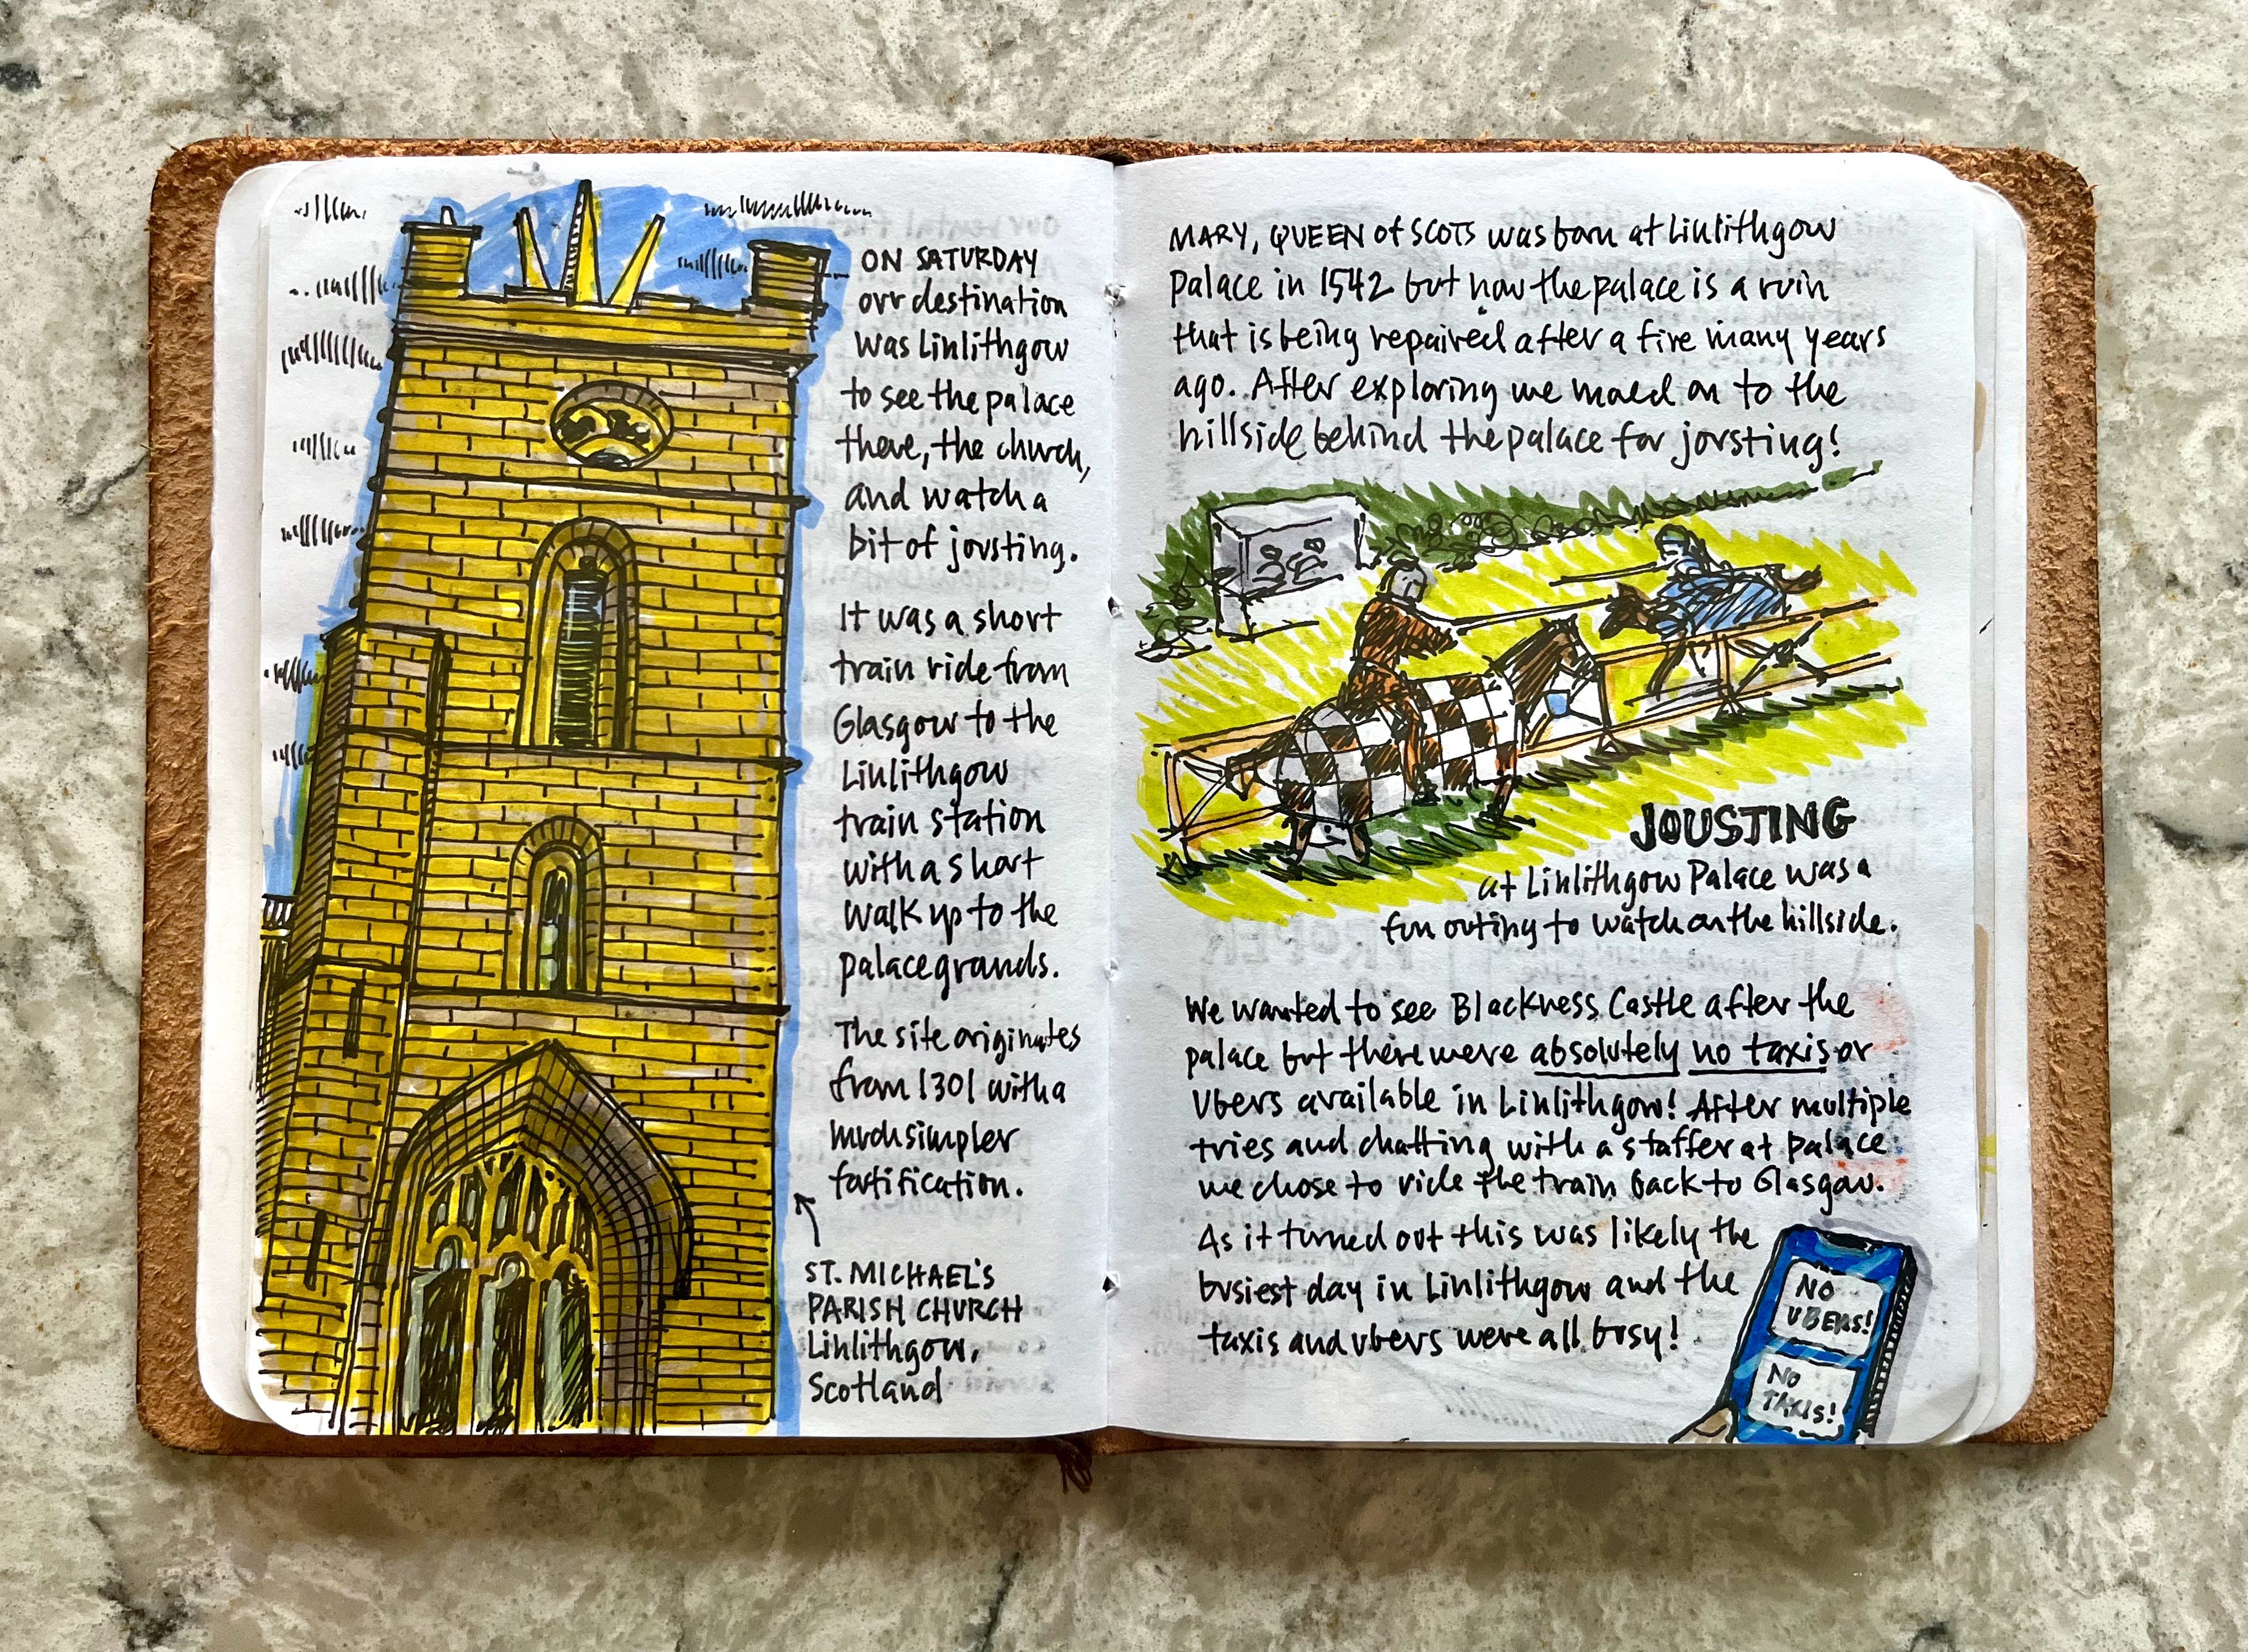 ON SATURDAY
our destination
was Linlithgow
to see the palace
there, the church,
and watch a
bit of jousting.
It was a short
train ride from
Glasgow to the
Linlithgow
train station
with a short
walk up to the
palace grounds.
The site originates
from 1301 with a
much simpler
fortification.
ST. MICHAEL'S
PARISH CHURCH
Linlithgow,
Scotland
MARY, QUEEN of SCOTS was born at Linlithgow
Palace in 1542 but now the palace is a ruin
that is being repaired after a fire many years
ago. After exploring we moved on to the
hillside behind the palace for jousting!
JOUSTING
at Linlithgow Palace was a
fun outing to watch on the hillside.
We wanted to see Blackness Castle after the
palace but there were absolutely no taxis or
Ubers available in Linlithgow! After multiple
tries and chatting with a staffer at palace
we chose to ride the train back to Glasgow.
As it turned out this was likely the
busiest day in Linlithgow and the
taxis and ubers were all busy!
NO
UBERS!
NO
TAXIS!